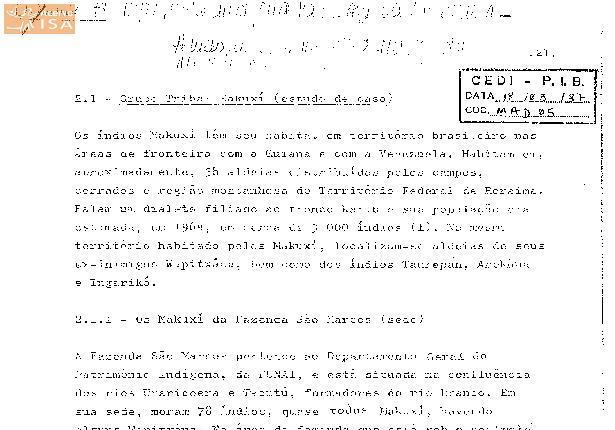 ISA
.21.
CEDI - P.I.B.
DATA 18/03/87
COD. MAD05
2.1 - Grupo Tribal Makuxí (estudo de caso)
Os índios Makuxí têm seu habitat em território brasileiro nas
áreas de fronteira com a Guiana e com a Venezuela. Habitam em,
aproximadamente, 36 aldeias distribuídas pelos campos,
cerrados e região montanhosa do Território Federal de Roraima.
Falam um dialeto filiado ao tronco Karib e sua população era
estimada, em 1969, em cerca de 3 000 índios (1). No mesmo
território habitado pelos Makuxí, localizam-se aldeias de seus
ex-inimigos Wapitxána, bem como dos índios Taurepán,
e Ingarikó.
2.1.1 - Os Makuxí da Fazenda São Marcos (sede)
A Fazenda São Marcos pertence ao Departamento Geral do
Patrimônio Indígena, da FUNAI, e está situada na confluência
dos rios Uraricoera e Tacutú, formadores do rio Branco. Em
sua sede, moram 78 índios, quase todos Makuxí, havendo
alguns Wapitxána. Na área da fazenda que está sob o